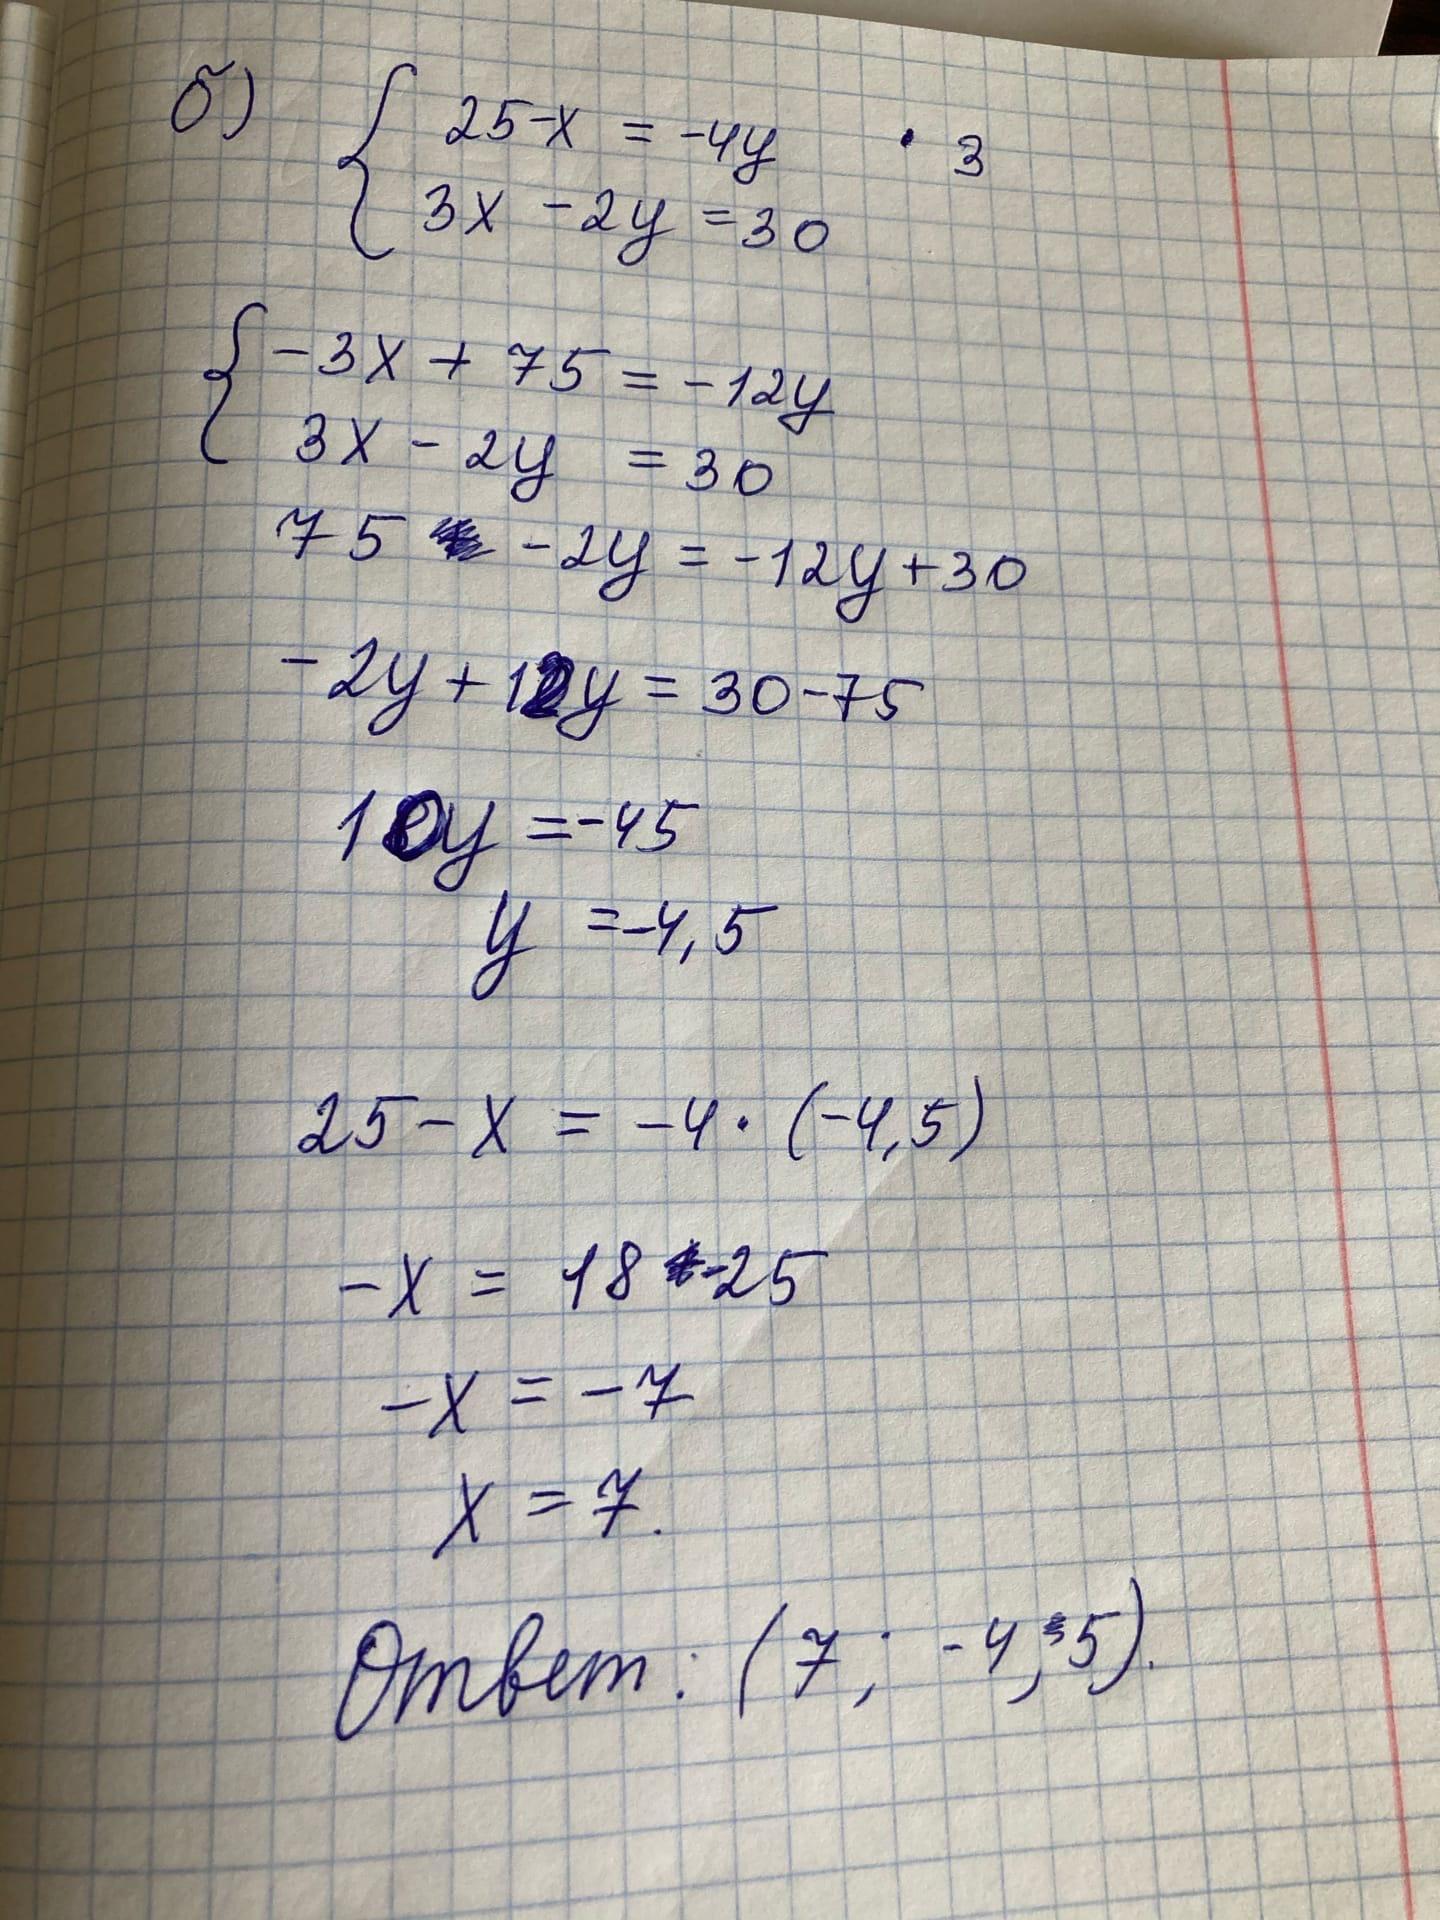 б) { 25-x = -4y · 3
3x - 2y = 30
{ -3x + 75 = -12y
3x - 2y = 30
75 - 2y = -12y + 30
-2y + 12y = 30 - 75
10y = -45
y = -4,5
25 - x = -4 · (-4,5)
-x = 18 - 25
-x = -7
x = 7.
Ответ: (7; -4,5).